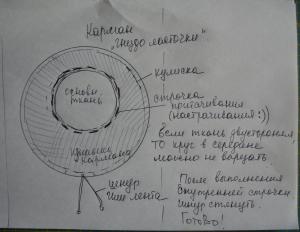 Карман
„Гнездо ласточки"
кулиска
основн.
ткань
строчка
притачивания
(настрачивания :))
Если ткань двусторонняя,
то круг в середине
можно не вырезать
крышка
кармана
шнур
или лента
После выполнения
внутренней строчки
шнур стянуть.
Готово!